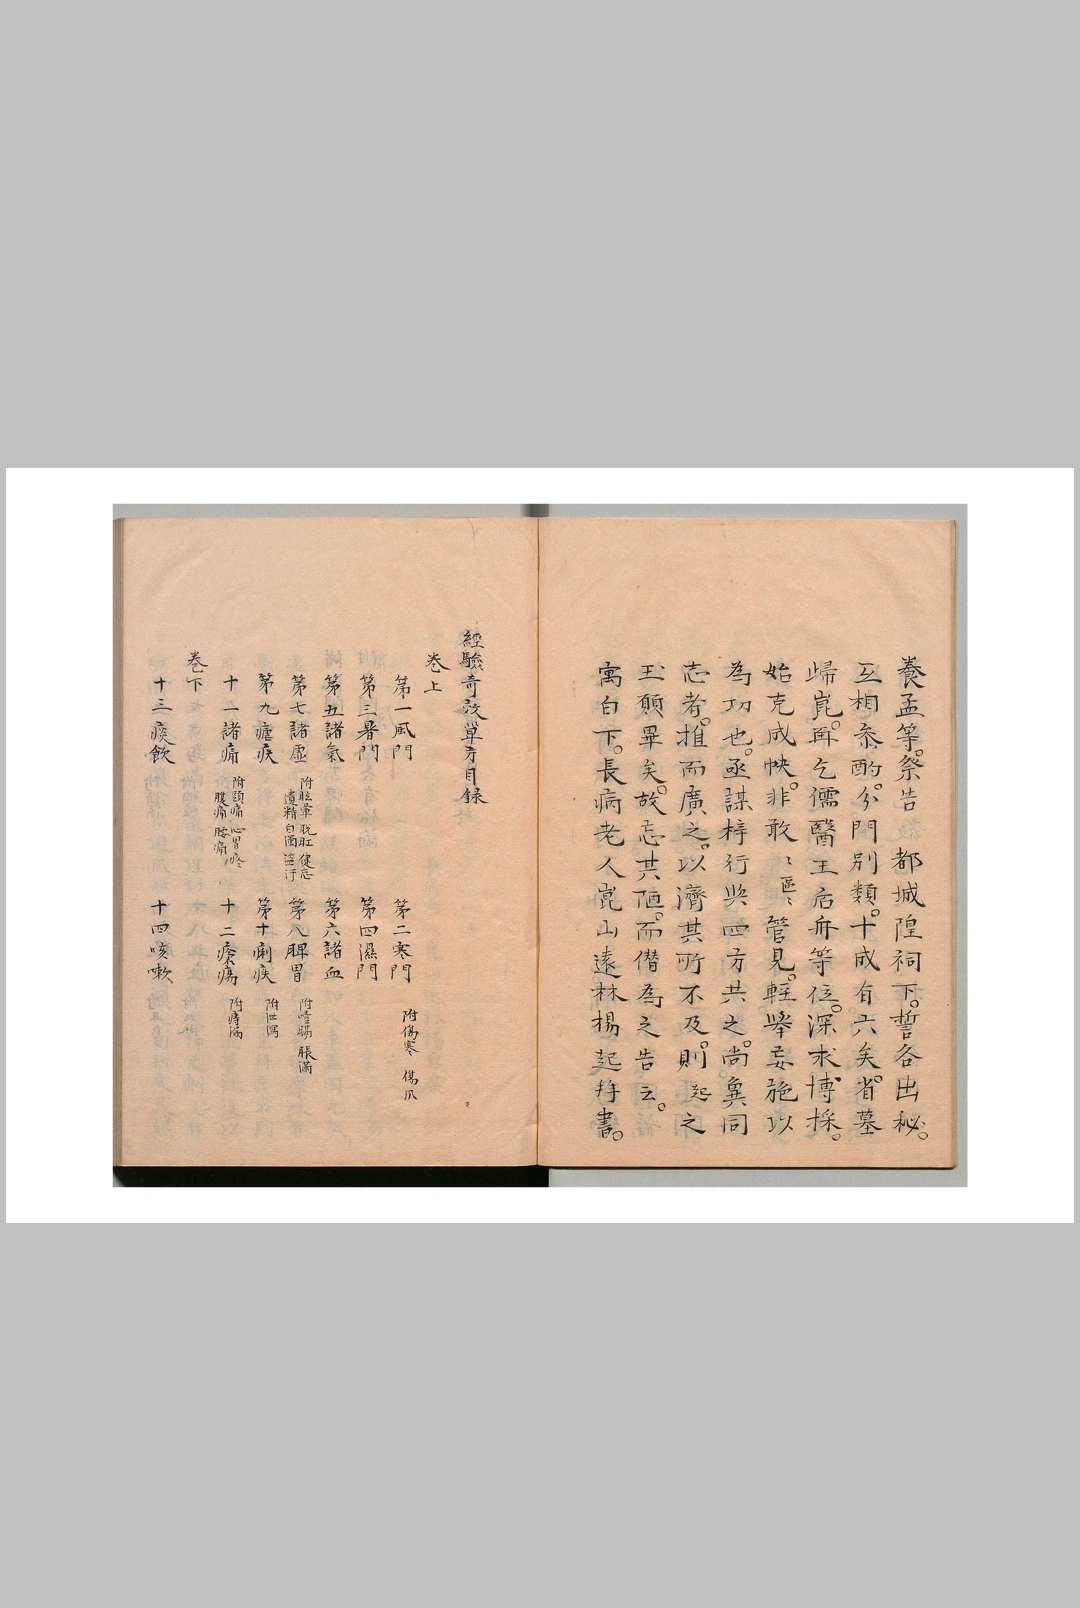 養孟等。祭告 都城隍祠下。誓各出秘。
互相叅酌。分門别類。十成有六矣。省墓
歸崑。再乞儒醫王居舟等位。深求博採。
始克成帙。非敢〻區〻管見。輕舉妄施以
為功也。亟謀梓行與四方共之。尚兾同
志者。推而廣之。以濟其所不及。則起之
至願畢矣。故忘其陋。而僭為之告云。
寓白下。長病老人崑山遠林楊起拜書。
經驗奇效單方目録
巻上
第一風門 第二寒門 附傷寒 傷爪
第三暑門 第四濕門
第五諸氣 第六諸血
第七諸虛 附眩暈 脱肛 健忘 遺精 白濁 盜汗 第八脾胃 附噎膈 脹滿
第九瘧疾 第十痢疾 附泄瀉
十一諸痛 附頭痛 心胃疼 腹痛 腰痛 十二瘡瘍 附痔漏
巻下
十三痰飲 十四咳嗽